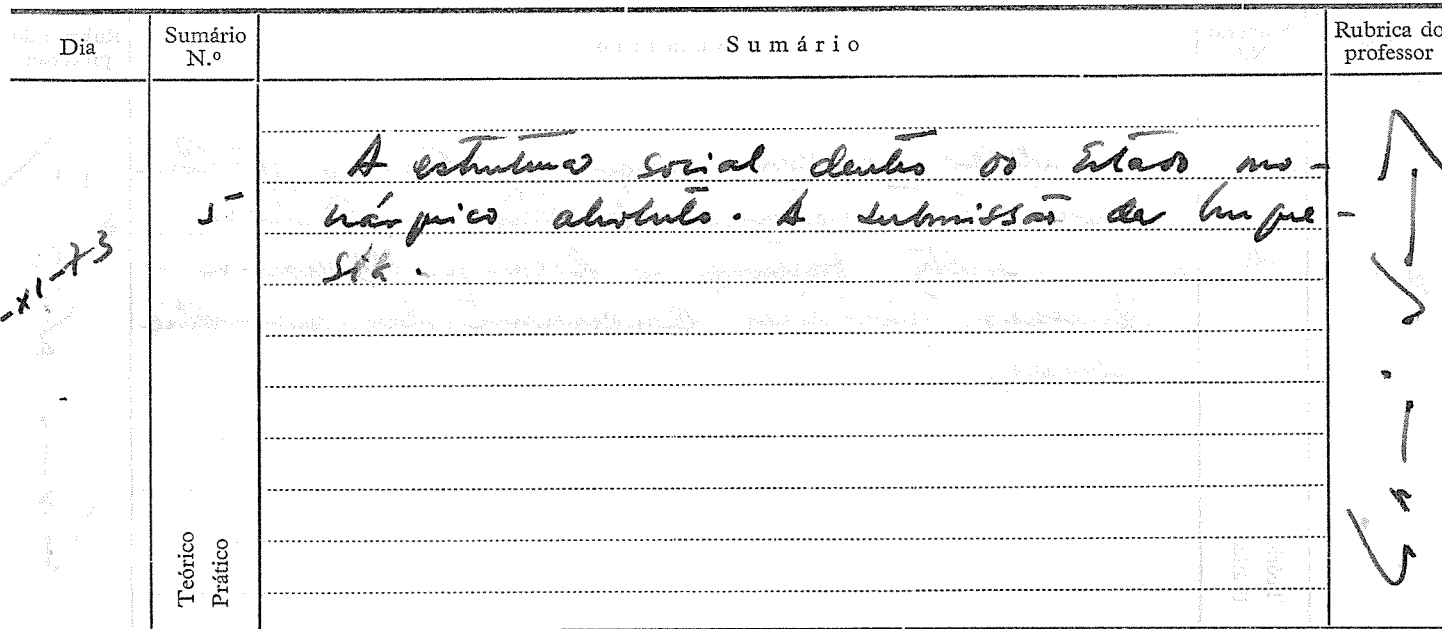 Dia
Sumário N.º
Sumário
Rubrica do professor
-XI-73
5
A estrutura social dentro do Estado mo-
nárquico absoluto. A submissão da burgue-
sia.
Teórico
Prático